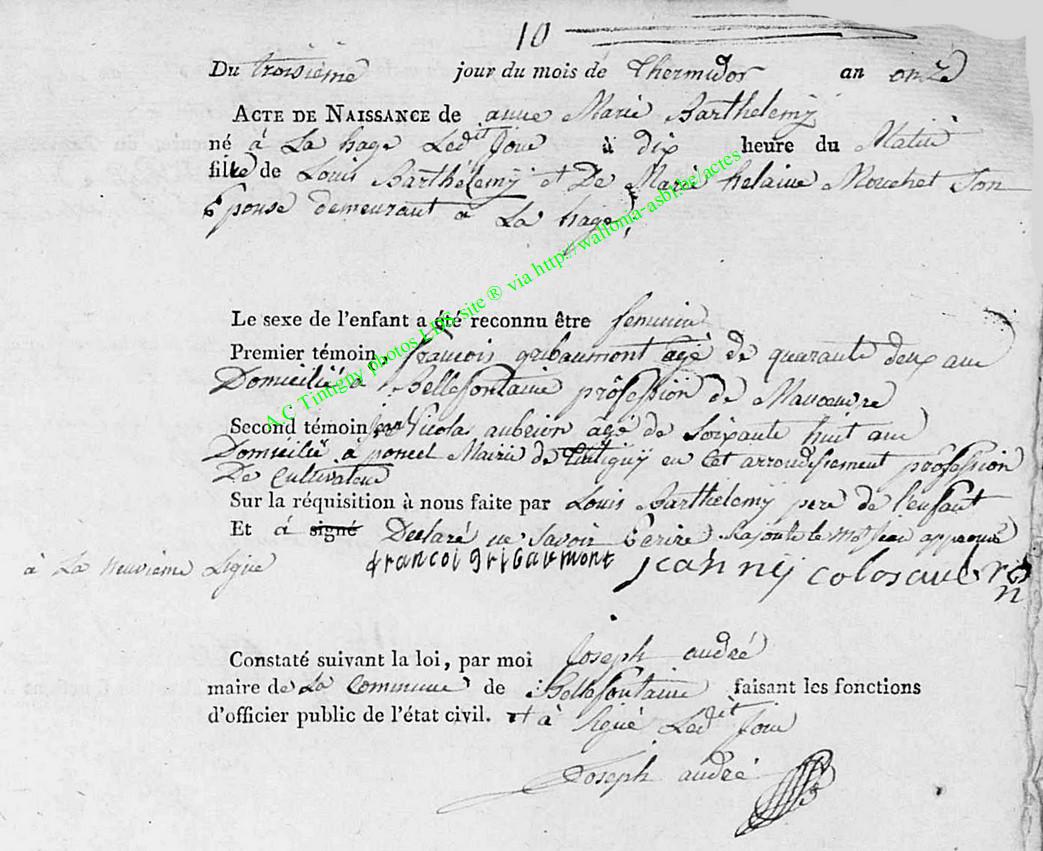 10
Du troisième jour du mois de Thermidor an onze
ACTE DE NAISSANCE de anne Marie Barthelemÿ
né à La hage Ledit Jour à dix heure du Matin
fille de Louis Barthélemÿ et De Marie helaine Mouchet Son
Epouse demeurant à La hage
Le sexe de l'enfant a été reconnu être feminin
Premier témoin, françois gribaumont agé de quarante deux ans
Domicilié à Bellefontaine profession de Manoeuvre
Second témoin jean Nicolas aubrion agé de soixante huit ans
Domicilié à poncel Mairie de tintignÿ en Cet arrondissement profession
De Cultivateur
Sur la réquisition à nous faite par Louis Barthélemÿ pere de l'enfant
Et à signé Declaré ne Savoir Ecrire. Rajouté le mot jean approuvé
à La neuvième Ligne
francoi gribaumont jean nij colas aubrion
Constaté suivant la loi, par moi Joseph andré
maire de La Commune de Bellefontaine faisant les fonctions
d'officier public de l'état civil. et à signé Ledit Jour
Joseph andré
A.C Tintigny photos LDS site ® via http://wallonia-asbl.be/actes